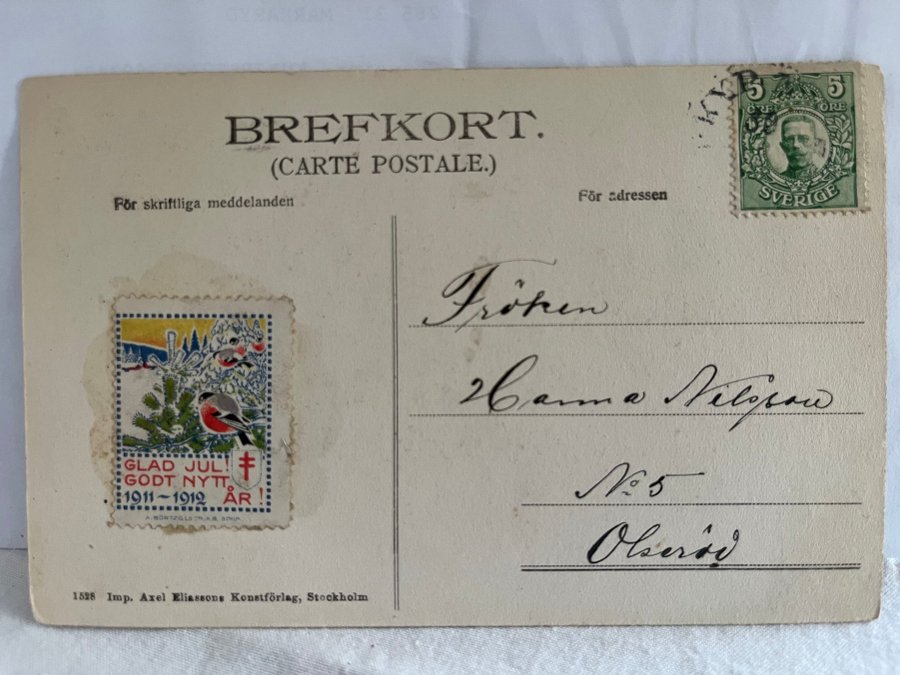 BREFKORT.
(CARTE POSTALE.)
För skriftliga meddelanden
För adressen
5 5
ÖRE ÖRE
SVERIGE
Fröken
Hanna Nilsson
No 5
Olseröd
GLAD JUL!
GODT NYTT
1911-1912 ÅR!
1528 Imp. Axel Eliassons Konstförlag, Stockholm